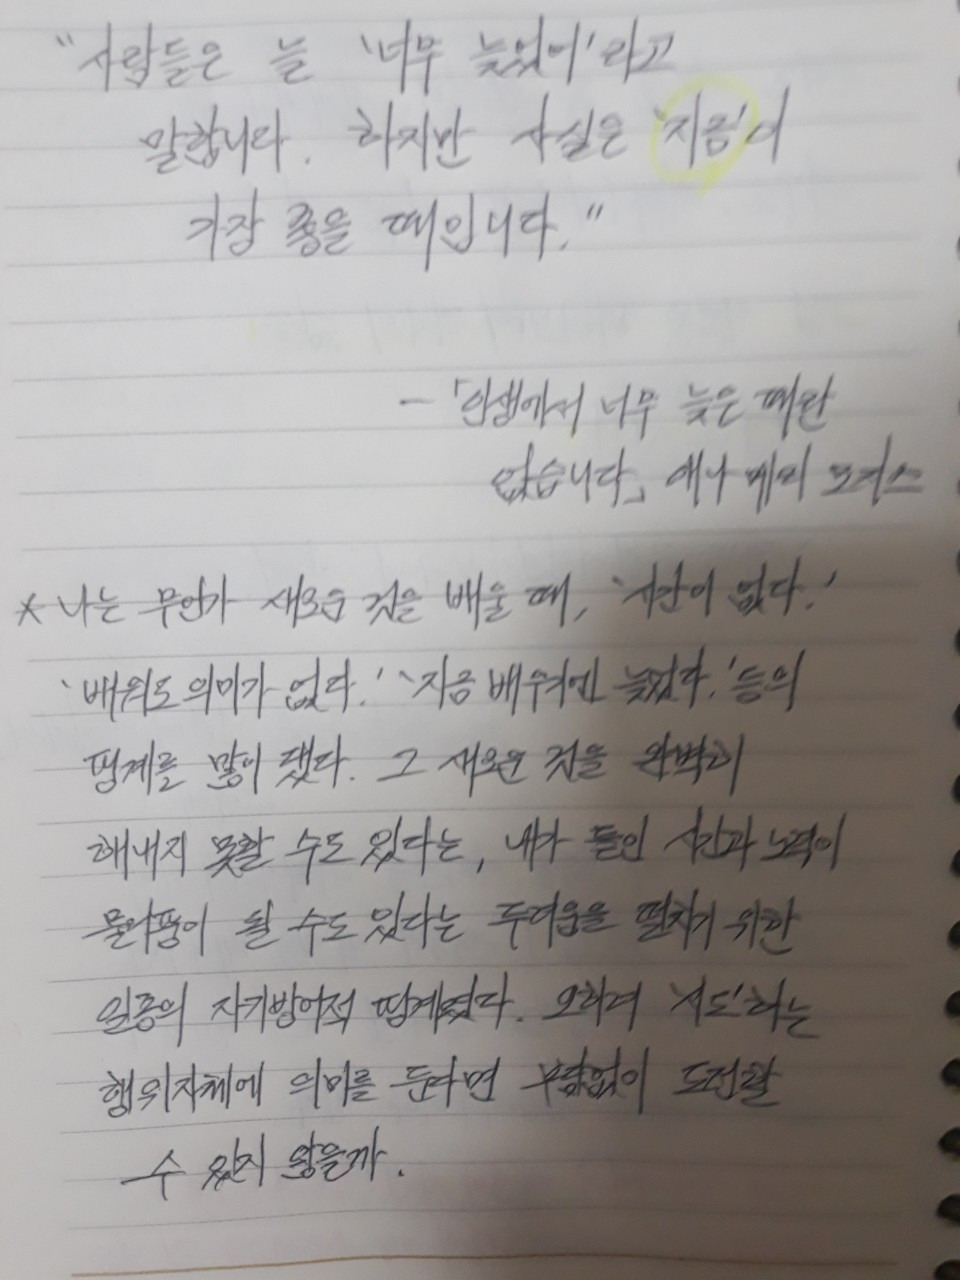 "사람들은 늘 '너무 늦었어'라고
말합니다. 하지만 사실은 '지금'이
가장 좋을 때입니다."
- 「인생에서 너무 늦은 때란
없습니다」 애나 메리 모지스
* 나는 무언가 새로운 것을 배울 때, '시간이 없다.'
'배워도 의미가 없다.' '지금 배우기엔 늦었다.' 등의
핑계를 많이 댔다. 그 새로운 것을 완벽히
해내지 못할 수도 있다는, 내가 들인 시간과 노력이
물거품이 될 수도 있다는 두려움을 떨치기 위한
일종의 자기방어적 핑계였다. 오히려 '시도'하는
행위자체에 의미를 둔다면 부담없이 도전할
수 있지 않을까.